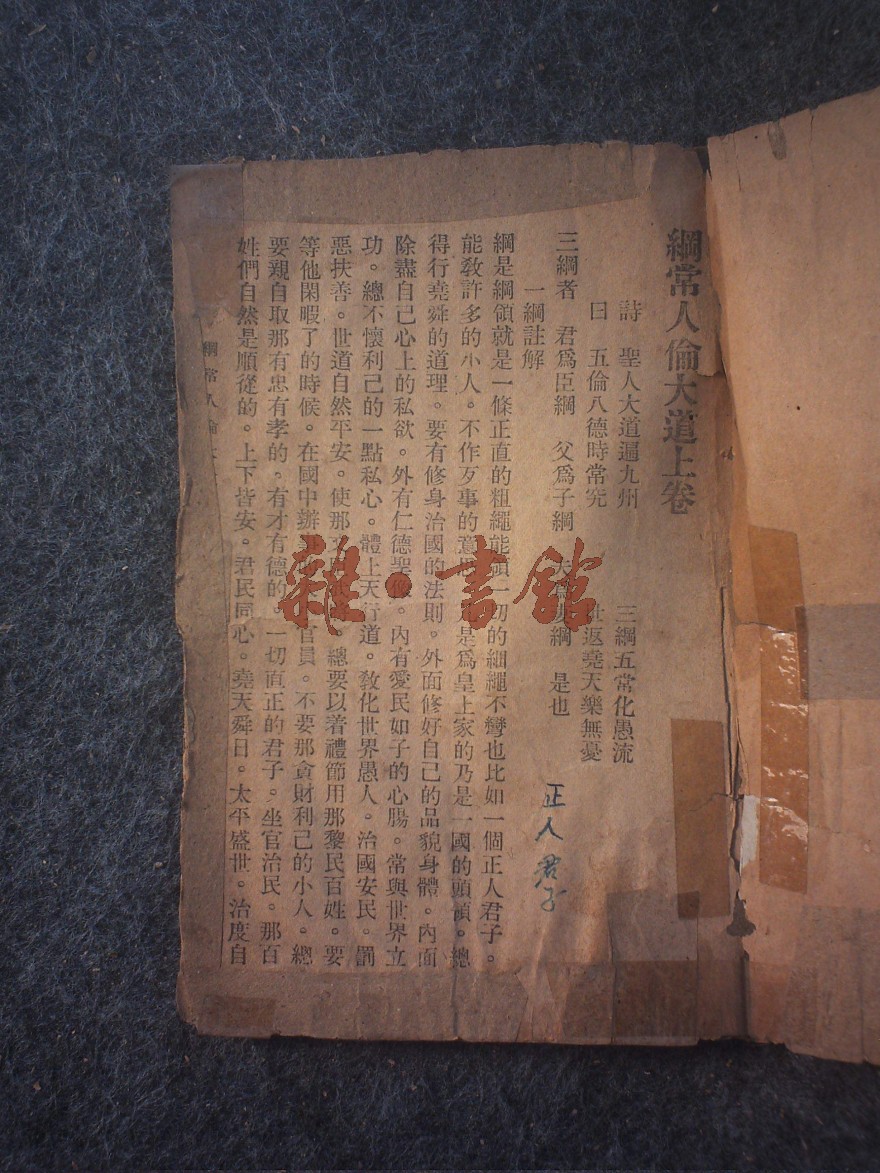 綱常人倫大道上卷
詩　聖人大道遍九州　三綱五常化愚流
曰　五倫八德時常究　世返堯天樂無憂
三綱者　君爲臣綱　父爲子綱　夫爲妻綱　是也
一綱註解
綱是綱領就是一條正直的粗繩能領一切的細繩不彎也比如一個正人君子。
能教許多的小人。不作歹事的意思是爲皇上家的乃是一國的頭領。總
得行堯舜的道理。要有修身治國的法則。外面修好自己的品貌身體。內面
除盡自己心上的私欲。外有仁德聖像。內有愛民如子的心腸。常與世界立
功。總不懷利己的一點私心。體上天行道。敎化世界愚人。治國安民。罰
惡扶善。世道自然平安。使那總要以着禮節用那黎民百姓。要
等他閑暇了的時候。在國中辦官員。不要那貪財利己的小人。總
要親自取那有忠有孝的。有才有德的。一切直正的君子。坐官治民。那百
姓們自然是順從的。上下皆安。君民同心。堯天舜日。太平盛世。治度自
綱常人倫
正人君子
雜·書館